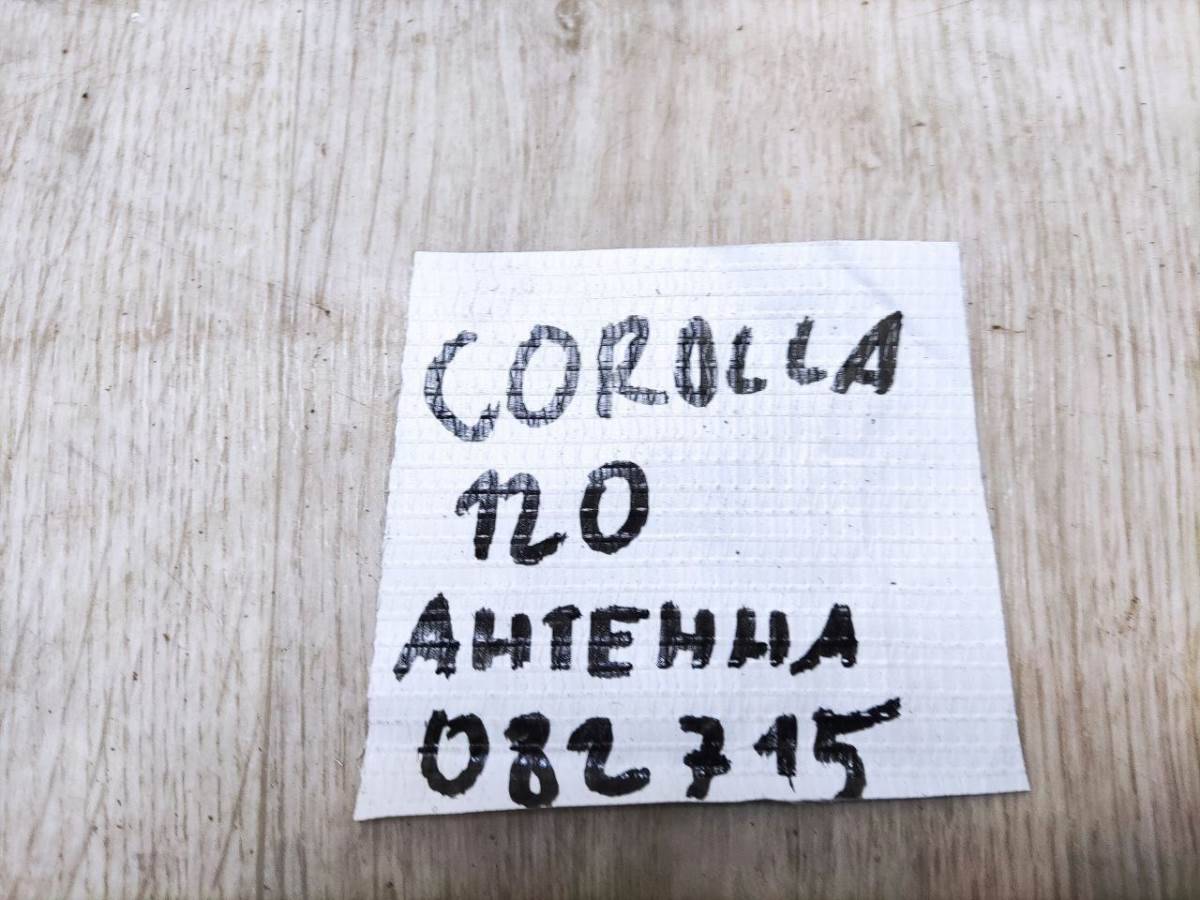 COROLLA
120
АНТЕННА
082715